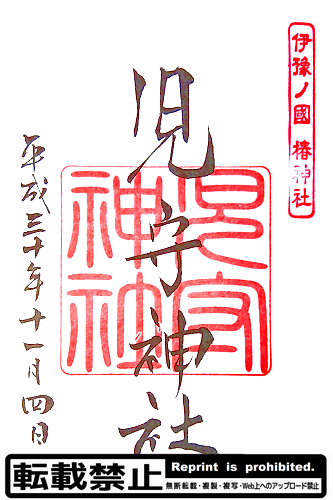 伊豫ノ國 椿神社
児守神社
児守
神社
平成三十年十一月四日
転載禁止
Reprint is prohibited.
無断転載・複製・複写・Web上へのアップロード禁止